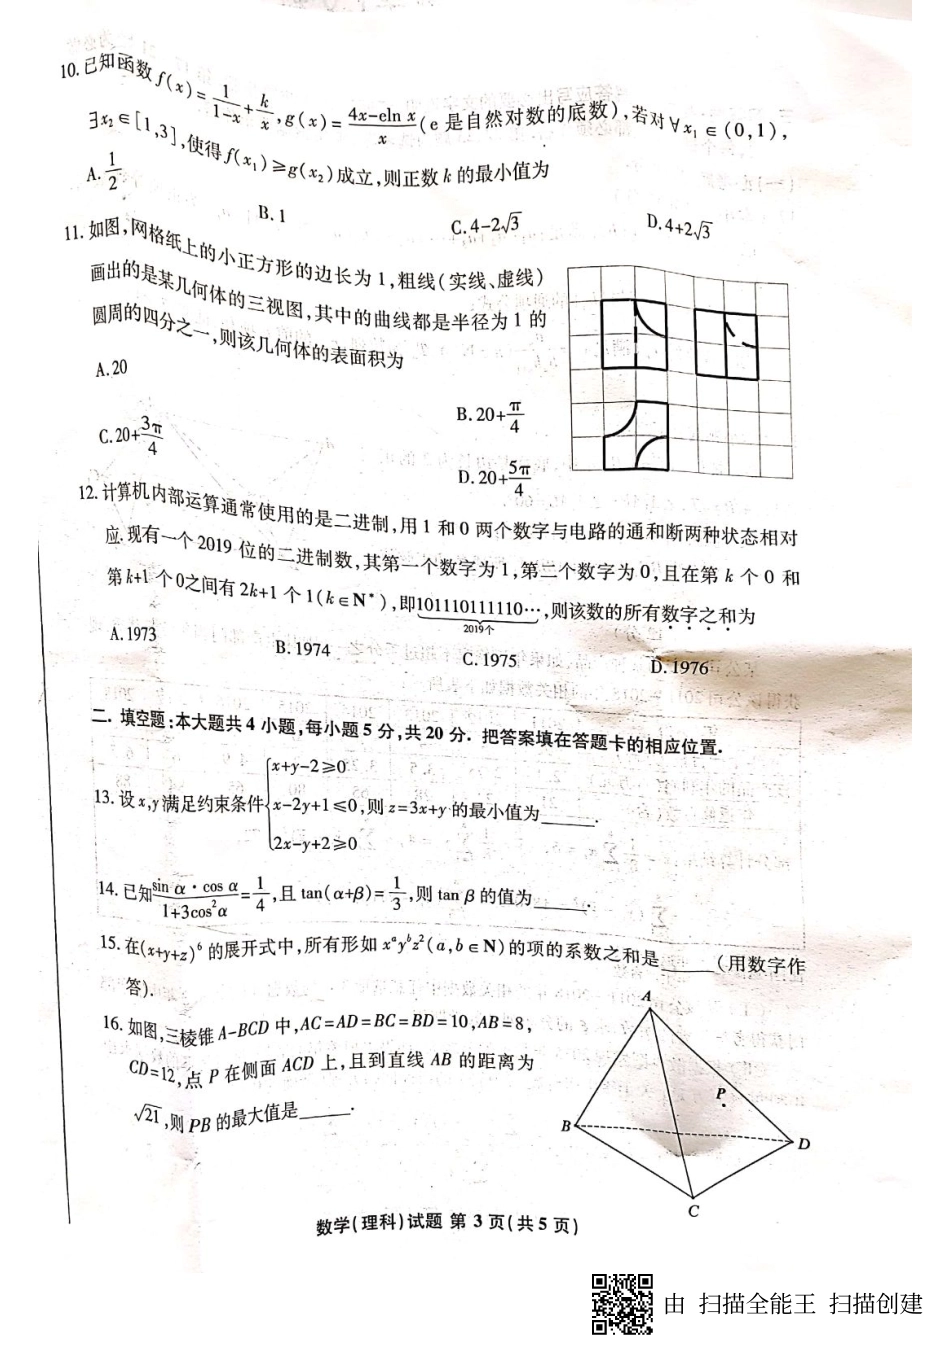 10.已知函数f(x)=\frac{1}{1-x}+\frac{k}{x},g(x)=\frac{4x-eln x}{x}(e是自然对数的底数),若对∀x₁∈(0,1),
∃x₂∈[1,3],使得f(x₁)≥g(x₂)成立,则正数k的最小值为
A.\frac{1}{2}
B.1
C.4-2√3
D.4+2√3
11.如图,网格纸上的小正方形的边长为1,粗线(实线、虚线)
画出的是某几何体的三视图,其中的曲线都是半径为1的
圆周的四分之一,则该几何体的表面积为
A.20
B.20+\frac{π}{4}
C.20+\frac{3π}{4}
D.20+\frac{5π}{4}
12.计算机内部运算通常使用的是二进制,用1和0两个数字与电路的通和断两种状态相对
应.现有一个2019位的二进制数,其第一个数字为1,第二个数字为0,且在第k个0和
第k+1个0之间有2k+1个1(k∈N*),即101110111110…,则该数的所有数字之和为
2019个
A.1973
B.1974
C.1975
D.1976
二.填空题:本大题共4小题,每小题5分,共20分.把答案填在答题卡的相应位置.
x+y-2≥0
13.设x,y满足约束条件{x-2y+1≤0,则z=3x+y的最小值为______.
2x-y+2≥0
14.已知\frac{sin α·cos α}{1+3cos²α}=\frac{1}{4},且tan(α+β)=\frac{1}{3},则tan β的值为______.
15.在(x+y+z)⁶的展开式中,所有形如xᵃyᵇz²(a,b∈N)的项的系数之和是______(用数字作
答).
16.如图,三棱锥A-BCD中,AC=AD=BC=BD=10,AB=8,
CD=12,点P在侧面ACD上,且到直线AB的距离为
√21,则PB的最大值是______.
A
P
B
D
C
数学(理科)试题 第3页(共5页)
由 扫描全能王 扫描创建